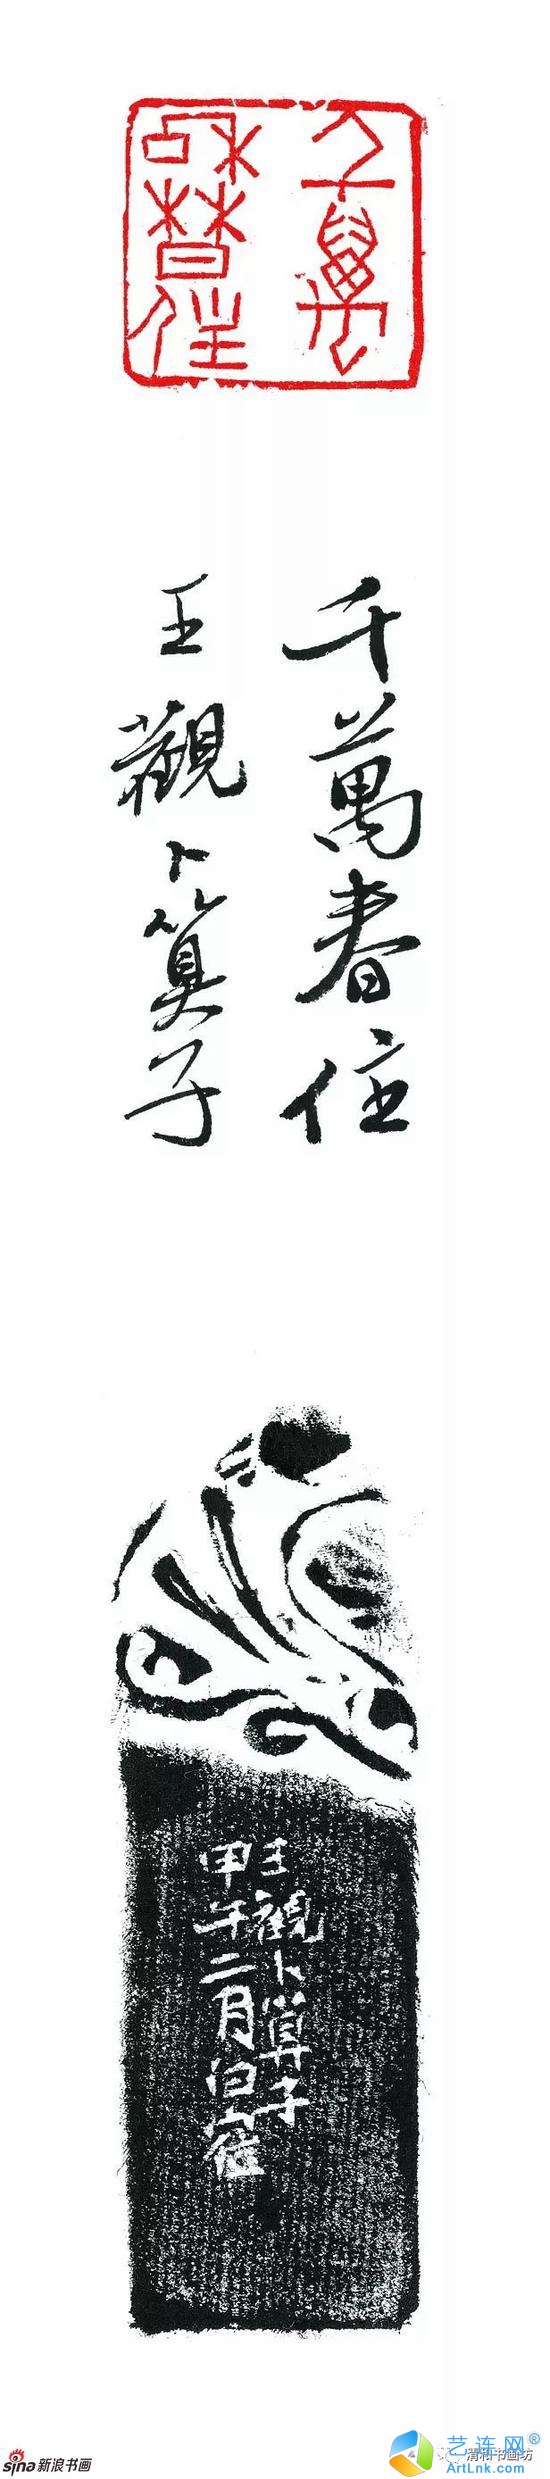 千萬
和春住
千萬春住
王觀卜算子
王觀卜算子
甲午二月
sina新浪书画
清和书画坊
艺连网®
ArtLnk.com